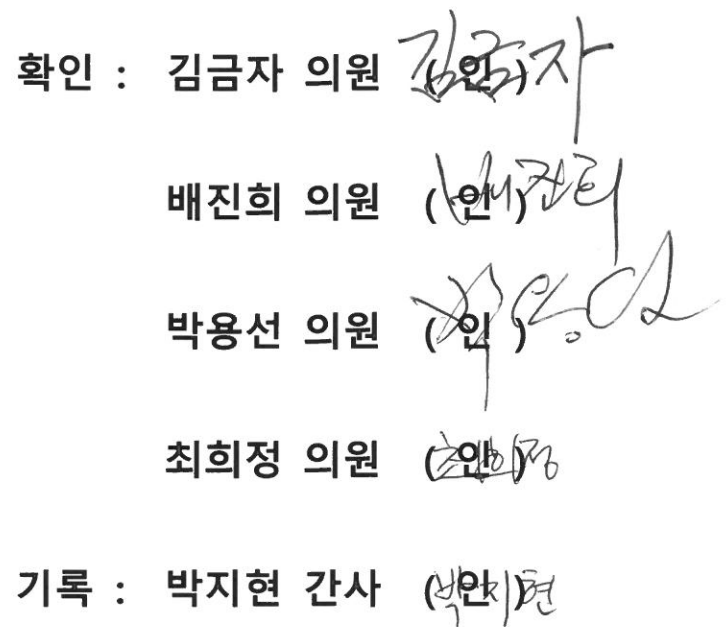 확인 : 김금자 의원 (인) 김금자
배진희 의원 (인) 배진희
박용선 의원 (인)
최희정 의원 (인) 최희정
기록 : 박지현 간사 (인) 박지현